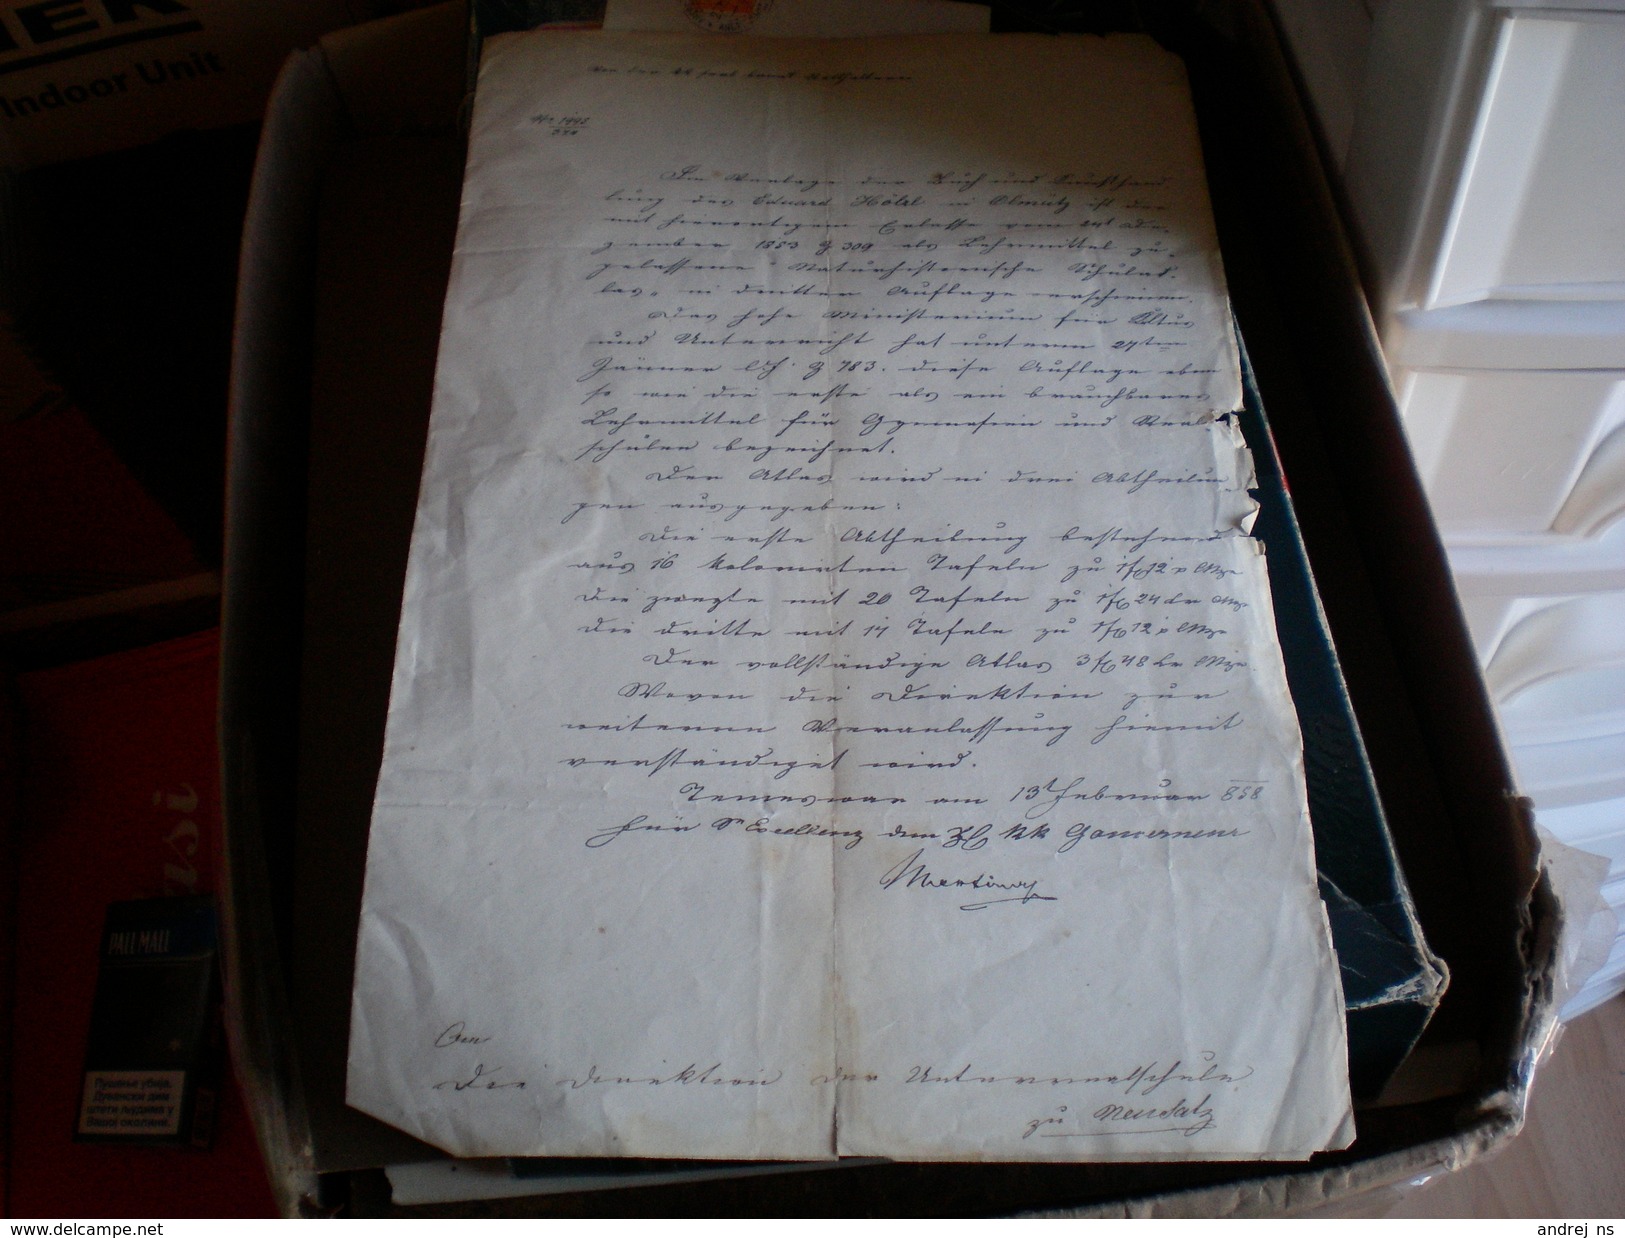 NEK
Indoor Unit
Von der kk
No 1448
Im Verlage der Buch und Kunsthand
lung des Eduard Hölzl in Olmütz ist der
mit hierortigem Erlasse vom
zember 1853 Z 309 als Lehrmittel zu-
gelassene "Naturhistorische Schulat-
las" in dritter Auflage erschienen.
Das hohe Ministerium für Kultus
und Unterricht hat unterm 27ten
Jänner l. J. Z 783. diese Auflage eben
so wie die erste als ein brauchbares
Lehrmittel für Gymnasien und Real-
schulen bezeichnet.
Der Atlas wird in drei Abtheilun
gen ausgegeben:
Die erste Abtheilung bestehend
aus 16 kolorirten Tafeln zu 1 f 12 x CMze
Die zweyte mit 20 Tafeln zu 1 f 24 kr CMze
Die dritte mit 14 Tafeln zu 1 f 12 x CMze
Der vollständige Atlas 3 f 48 kr CMze.
Wovon die Direktion zur
weiteren Veranlassung hiemit
verständiget wird.
Temeswar am 13t Februar 858
Für Sr Excellenz den kk Gouverneur
An
Die Direktion der Unterrealschule
zu Neusatz
PALL MALL
Пушење убија.
Дувански дим
штети људима у
Вашој околини.
asi
www.delcampe.net
andrej ns